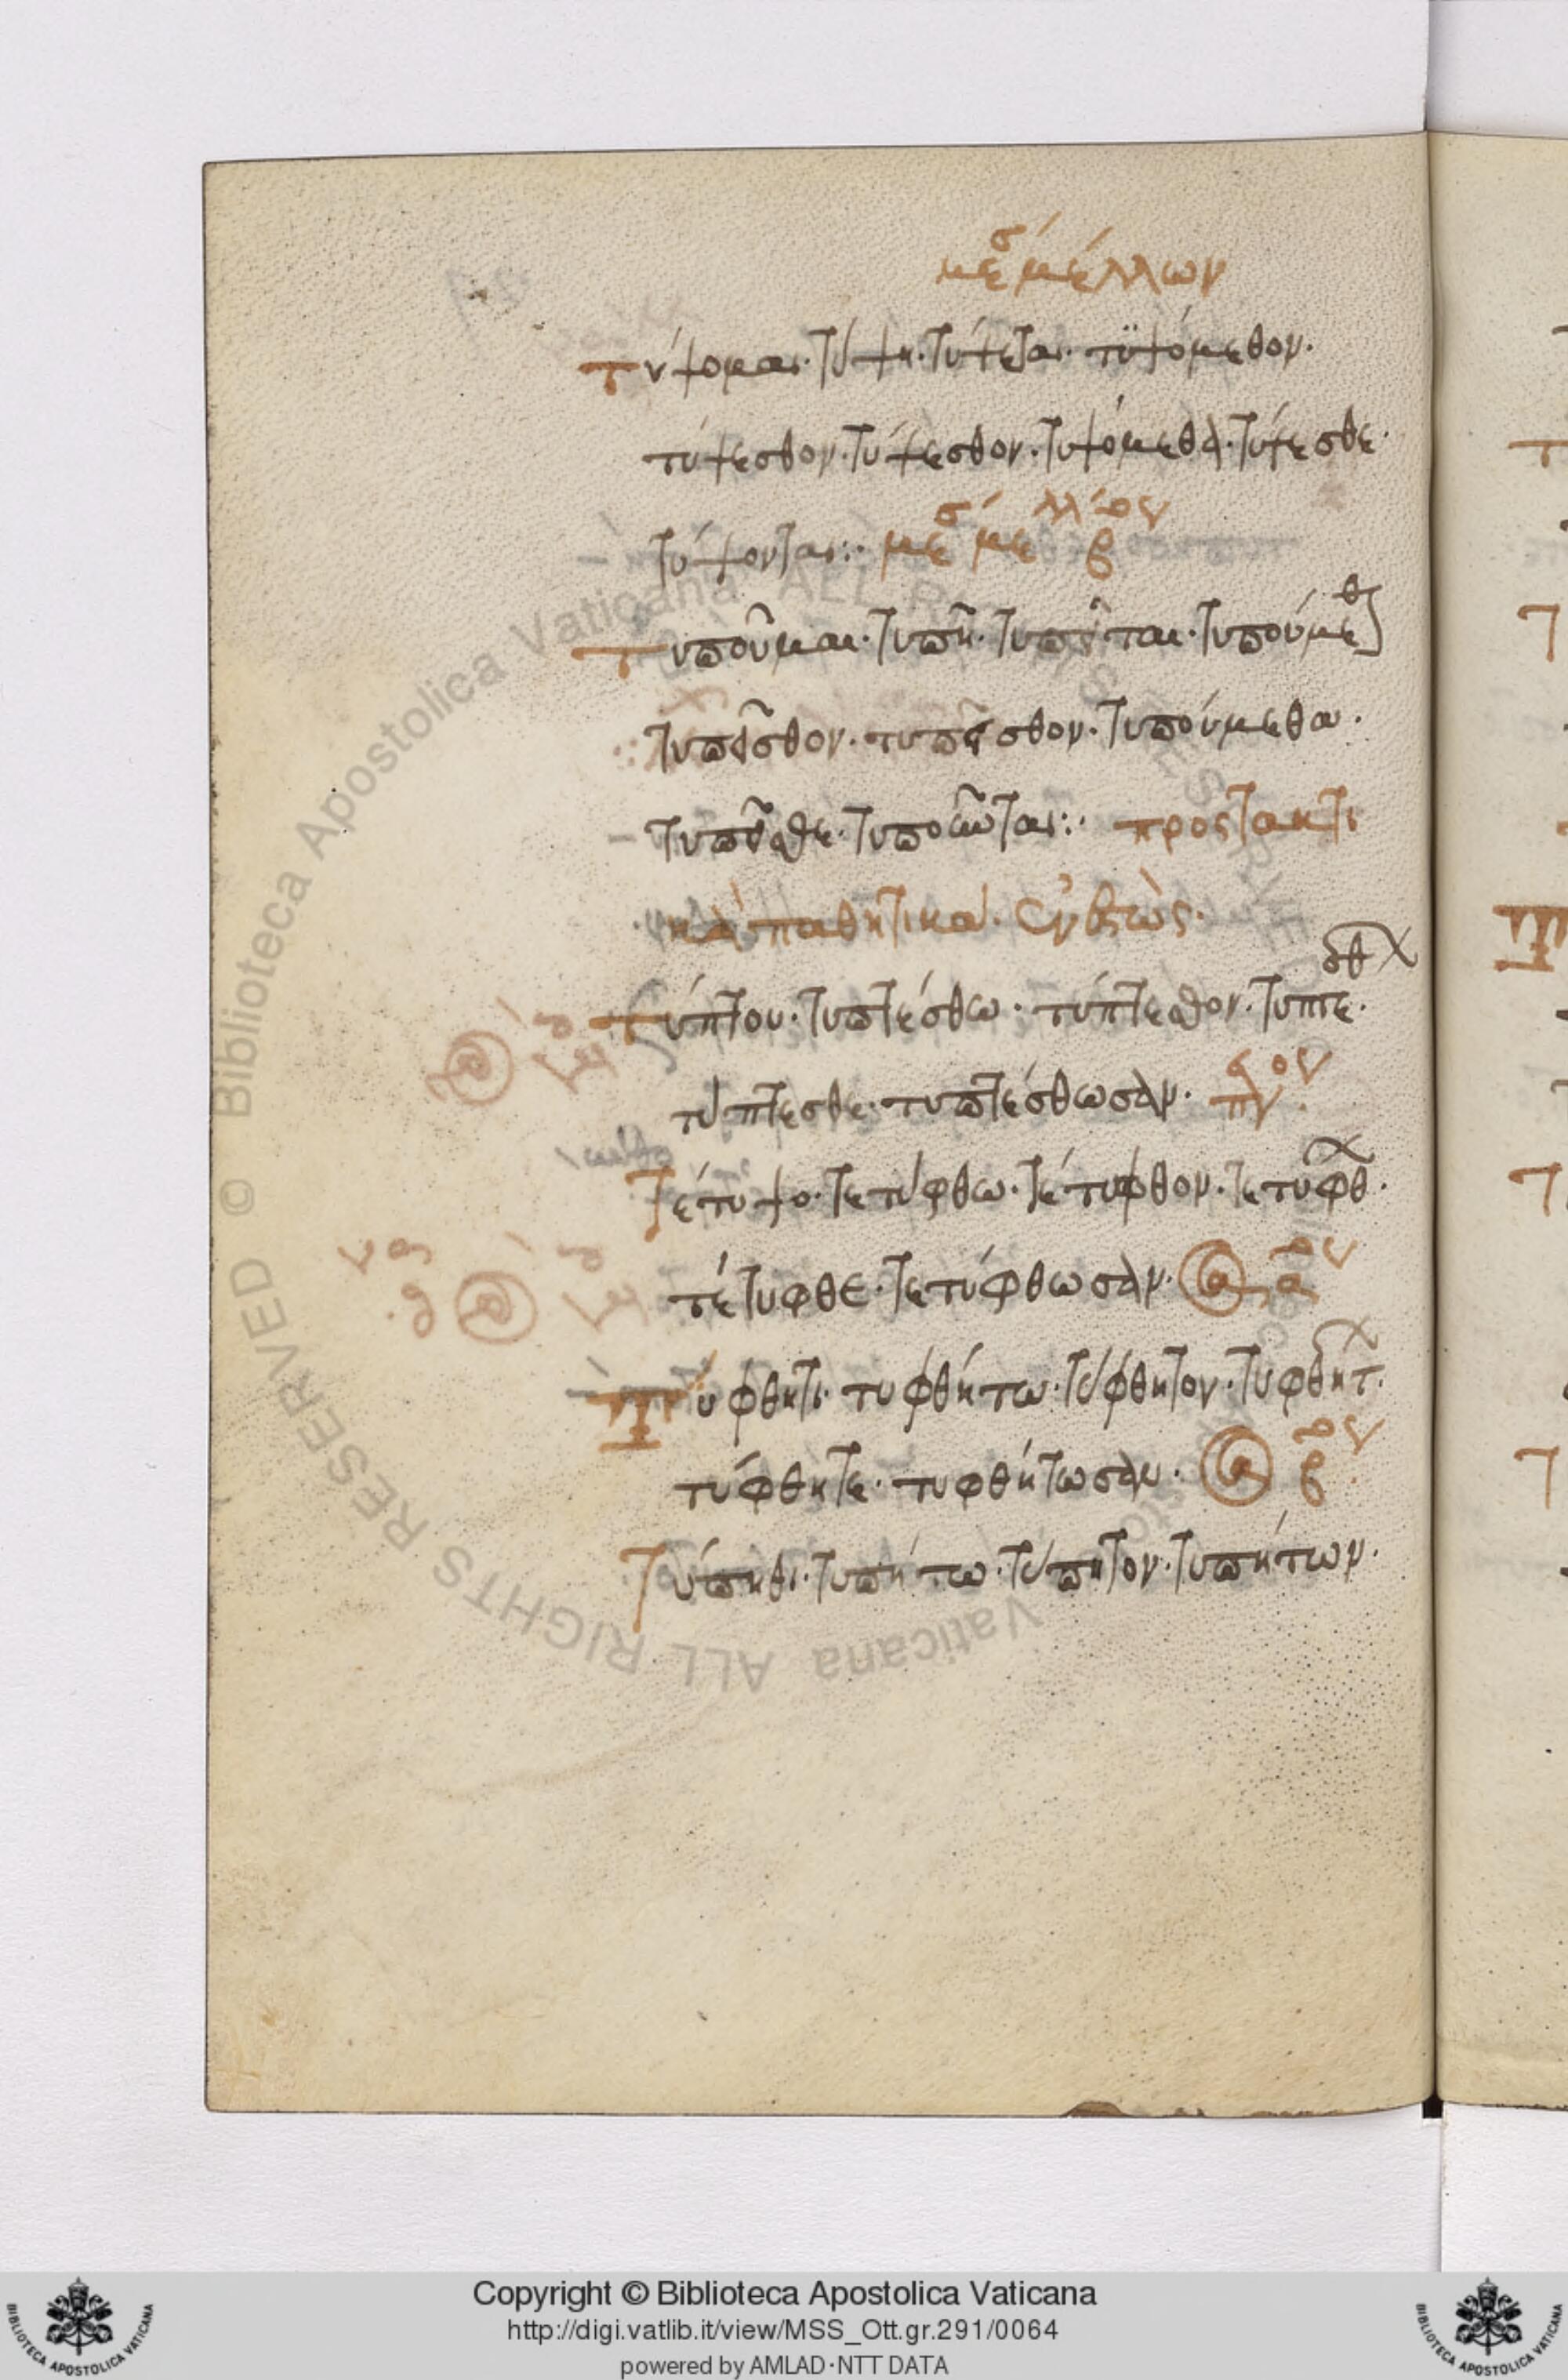 μεσ μέλλων
τύψομαι· τύψη· τύψεται· τϋψόμεθον·
τύψεσθον· τύψεσθον· τυψόμεθα· τύψεσθε·
τύψονται:· μεσ μελλων β
τυποῦμαι· τυπῆ· τυπεῖται· τυπούμεθ
τυπεῖσθον· τυπεῖσθον· τυπούμεθα·
τυπεῖσθε· τυποῦνται:· προστακτι
κὰ παθητικά· ἐνεστώς·
τύπτου· τυπτέσθω· τύπτεσθον· τυπτεσθ·
τύπτεσθε· τυπτέσθωσαν·
τέτυψο· τετύφθω· τέτυφθον· τετύφθ·
τέτυφθε· τετύφθωσαν·
τύφθητι· τυφθήτω· τύφθητον· τυφθητ·
τύφθητε· τυφθήτωσαν·
τύπηθι· τυπήτω· τύπητον· τυπήτων·
Copyright © Biblioteca Apostolica Vaticana
http://digi.vatlib.it/view/MSS_Ott.gr.291/0064
powered by AMLAD·NTT DATA